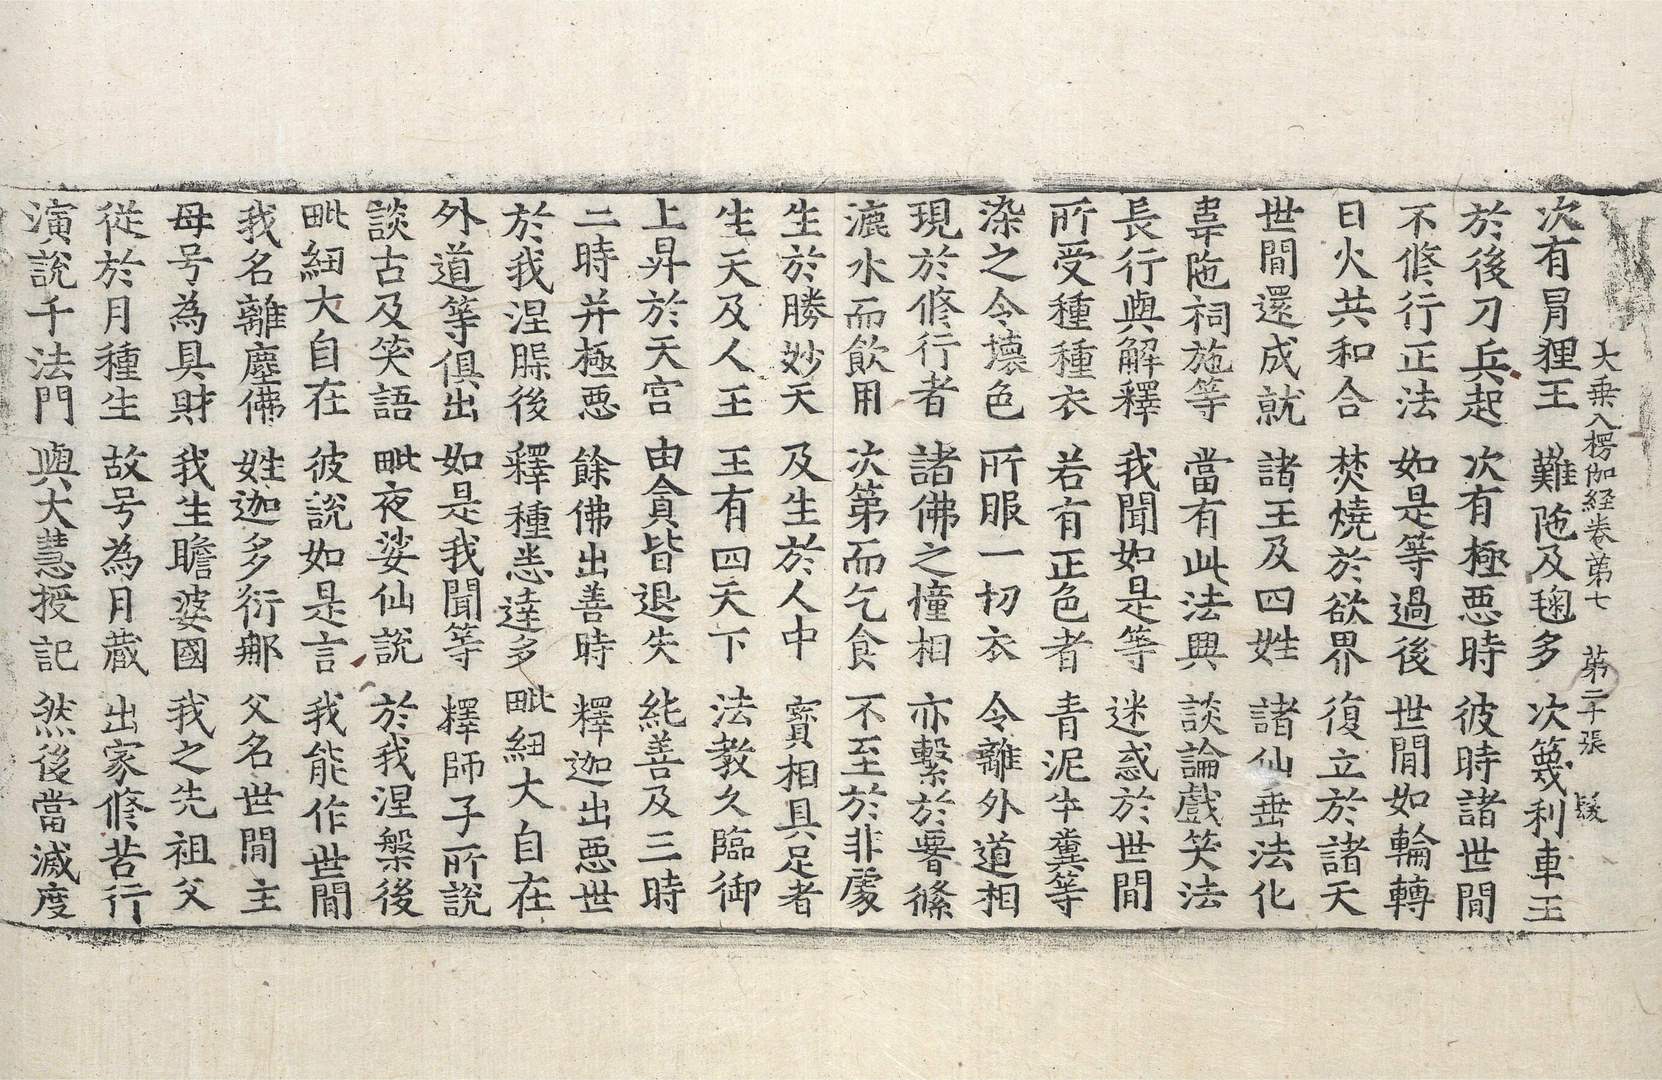 大乗入楞伽経卷第七　第二十張　髮
次有冐狸王　難陁及毱多　次篾利車王
於後刀兵起　次有極悪時　彼時諸世間
不修行正法　如是等過後　世間如輪轉
日火共和合　焚燒於欲界　復立於諸天
世間還成就　諸王及四姓　諸仙垂法化
韋陁祠施等　當有此法興　談論戲笑法
長行與解釋　我聞如是等　迷惑於世間
所受種種衣　若有正色者　青泥牛糞等
染之令壞色　所服一切衣　令離外道相
現於修行者　諸佛之憧相　亦繫於䙅絛
漉水而飲用　次第而乞食　不至於非處
生於勝妙天　及生於人中　寳相具足者
生天及人王　王有四天下　法教久臨御
上昇於天宫　由貪皆退失　純善及三時
二時并極悪　餘佛出善時　釋迦出悪世
於我涅槃後　釋種悉達多　毗紐大自在
外道等俱出　如是我聞等　釋師子所說
談古及笑語　毗夜娑仙說　於我涅槃後
毗紐大自在　彼說如是言　我能作世間
我名離塵佛　姓迦多衍郍　父名世間主
母号為具財　我生瞻婆國　我之先祖父
從於月種生　故号為月蔵　出家修苦行
演說千法門　與大慧授記　然後當滅度